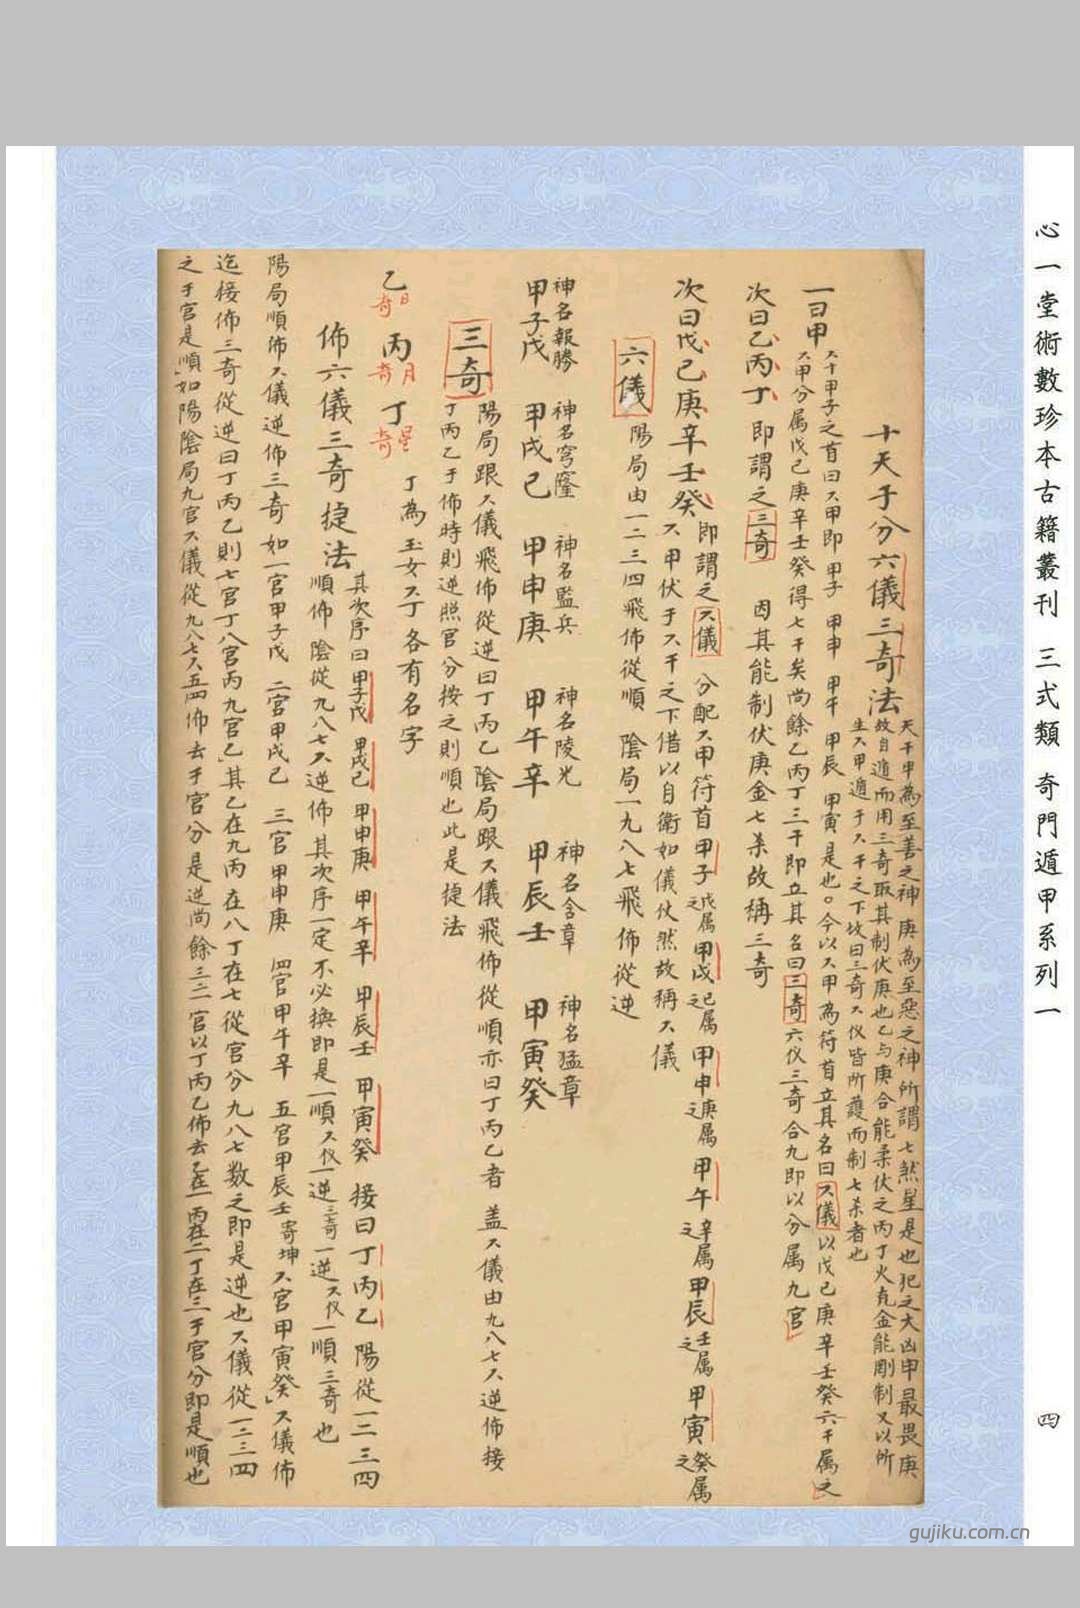 心一堂術數珍本古籍叢刊 三式類 奇門遁甲系列一
四
十天干分六儀三奇法
天干甲為至善之神庚為至惡之神所謂七煞星是也犯之大凶甲最畏庚
故自遁而用三奇取其制伏庚也乙与庚合能柔伏之丙丁火克金能剛制又以所
生六甲遁于六干之下故曰三奇六仪皆所護而制七杀者也
一曰甲
六十甲子之首曰六甲即甲子 甲申 甲午 甲辰 甲寅是也。今以六甲為符首立其名曰六儀以戊己庚辛壬癸六干属之
六甲分属戊己庚辛壬癸得七干矣尚餘乙丙丁三干即立其名曰三奇六仪三奇合九即以分属九宫
次曰乙丙丁即謂之三奇 因其能制伏庚金七杀故稱三奇
次曰戊己庚辛壬癸即謂之六儀 分配六甲符首甲子戊属之甲戌己属之甲申庚属之甲午辛属之甲辰壬属之甲寅癸属之
六甲伏于六干之下借以自衛如儀仗然故稱六儀
六儀
陽局由一二三四飛佈從順 陰局一九八七飛佈從逆
神名報勝 神名穹窿 神名監兵 神名陵光 神名含章 神名猛章
甲子戊 甲戌己 甲申庚 甲午辛 甲辰壬 甲寅癸
三奇
陽局跟六儀飛佈從逆曰丁丙乙陰局跟六儀飛佈從順亦曰丁丙乙者 盖六儀由九八七六逆佈接
丁丙乙于佈時則逆照宫分按之則順也此是捷法
乙日奇 丙月奇 丁星奇
丁為玉女六丁各有名字
佈六儀三奇捷法
其次序曰甲子戊 甲戌己 甲申庚 甲午辛 甲辰壬 甲寅癸 接曰丁丙乙陽從一二三四
順佈 陰從九八七六逆佈其次序一定不必換即是一順六仪一逆三奇一逆六仪一順三奇也
陽局順佈六儀逆佈三奇如一宫甲子戊 二宫甲戌己 三宫甲申庚 四宫甲午辛 五宫甲辰壬寄坤六宫甲寅癸六儀佈
迄接佈三奇從逆曰丁丙乙則七宫丁八宫丙九宫乙其乙在九丙在八丁在七從宫分九八七数之即是逆也六儀從一二三四
之于宫是順如陽陰局九宫六儀從九八七六五四佈去于宫分是逆尚餘三二一宫以丁丙乙佈去乙在一丙在二丁在三于宫分即是順也
gujiku.com.cn